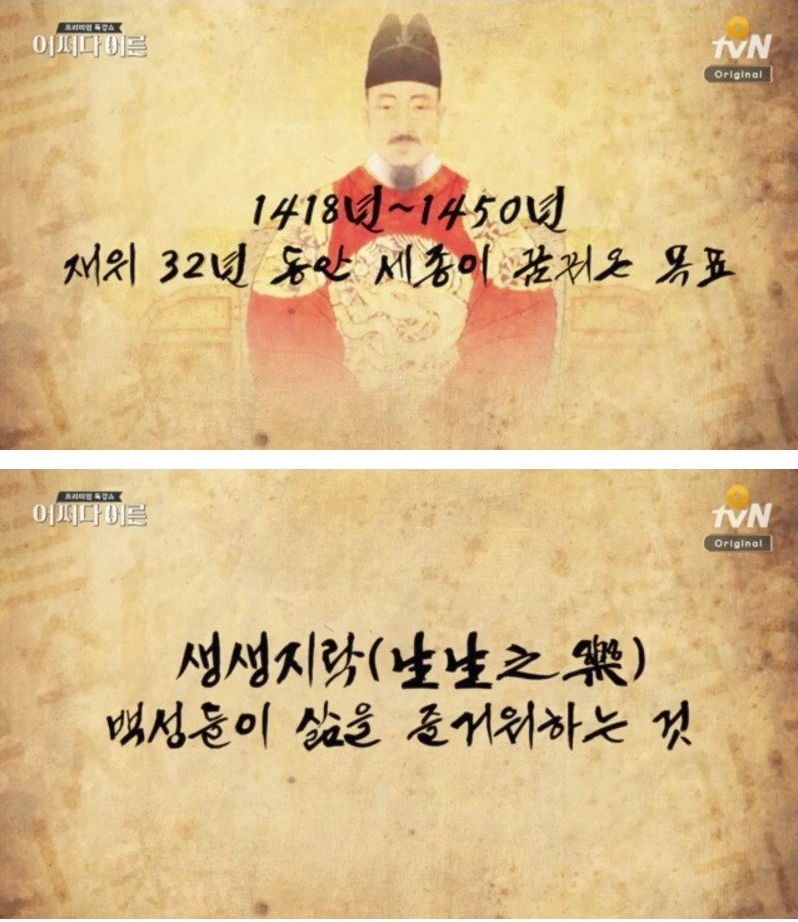 프리미엄 특강쇼
어쩌다 어른
tvN
Original
1418년~1450년
재위 32년 동안 세종이 꿈꿔온 목표
프리미엄 특강쇼
어쩌다 어른
tvN
Original
생생지락(生生之樂)
백성들이 삶을 즐거워하는 것